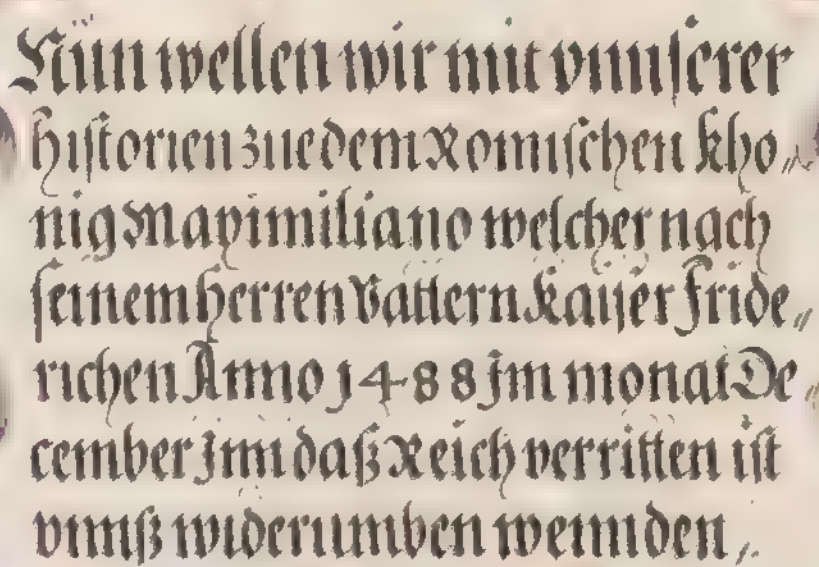 Nün wellen wir mit vnnserer
historien zue dem Romischen kho„
nig Maximiliano welcher nach
seinem herren Vattern Kaiser Fride„
richen Anno 1488 jm monat De„
cember jnn daß Reich verritten ist
vnnß widerumben wennden /.